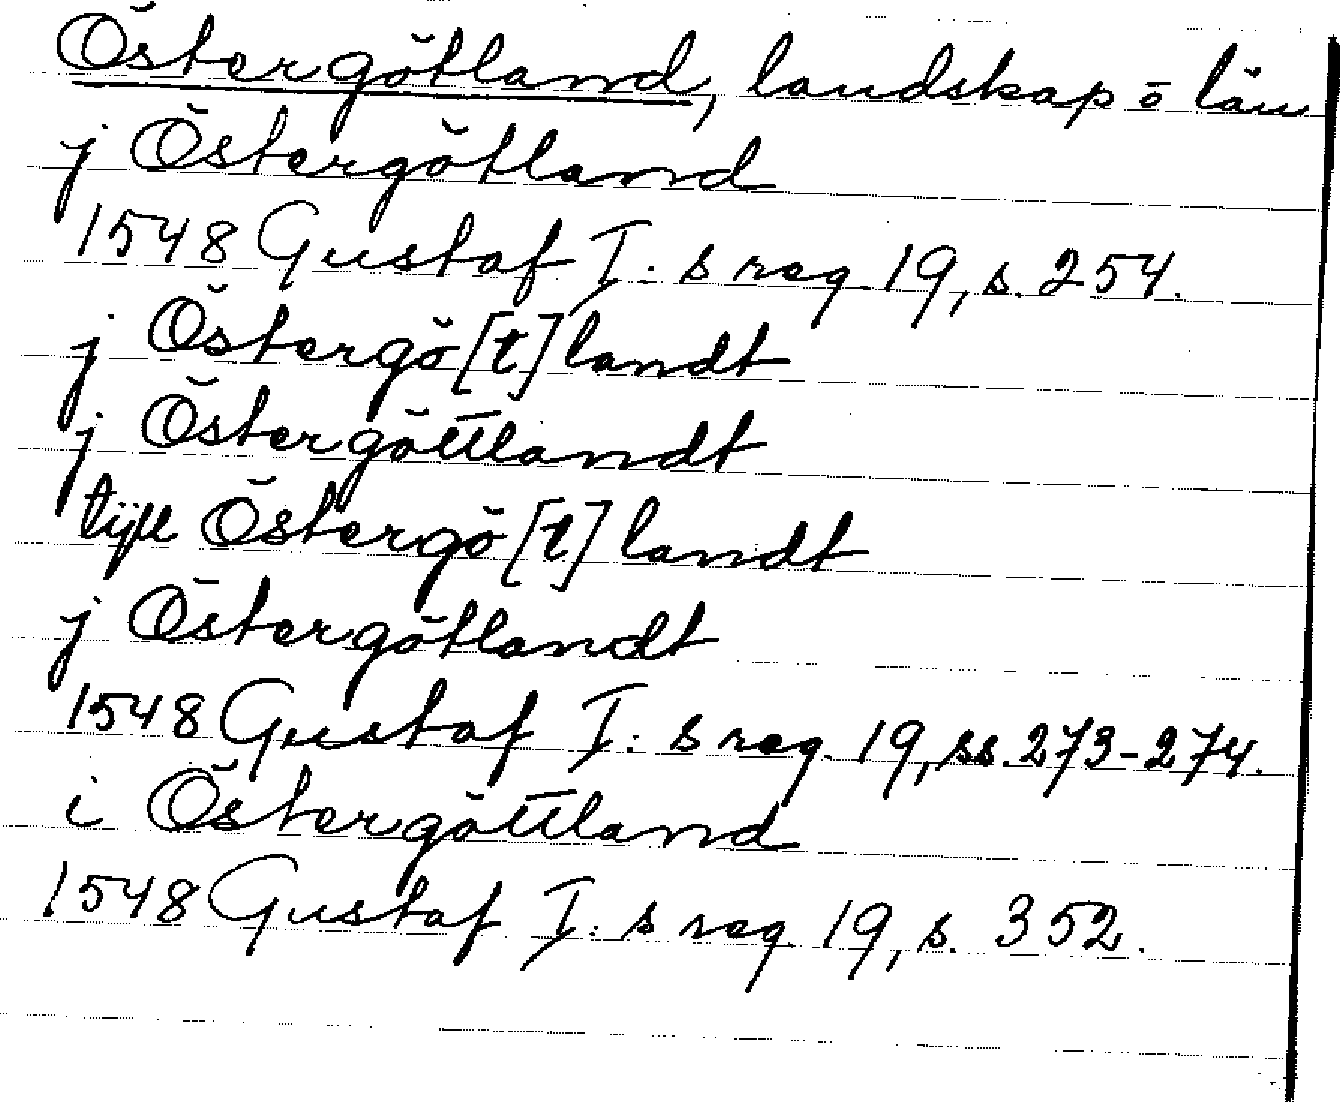 Östergötland, landskap o län
j Östergötland
1548 Gustaf I:s reg 19, s. 254.
j Östergö[t]landt
j Östergöttlandt
tijll Östergö[t]landt
j Östergötlandt
1548 Gustaf I:s reg. 19, ss. 273-274.
i Östergöttland
1548 Gustaf I:s reg. 19, s. 352.